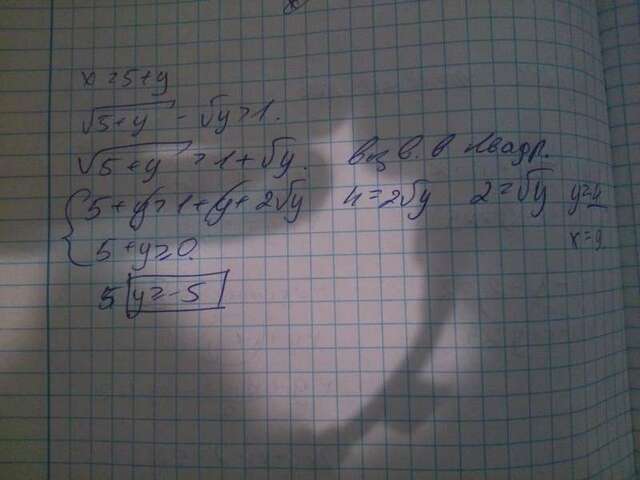 x = 5 + y
√5+y - √y = 1.
√5+y = 1 + √y. взв. в квадр.
{ 5 + y = 1 + y + 2√y 4 = 2√y 2 = √y y = 4
5 + y ≥ 0. x = 9
5 y ≥ -5